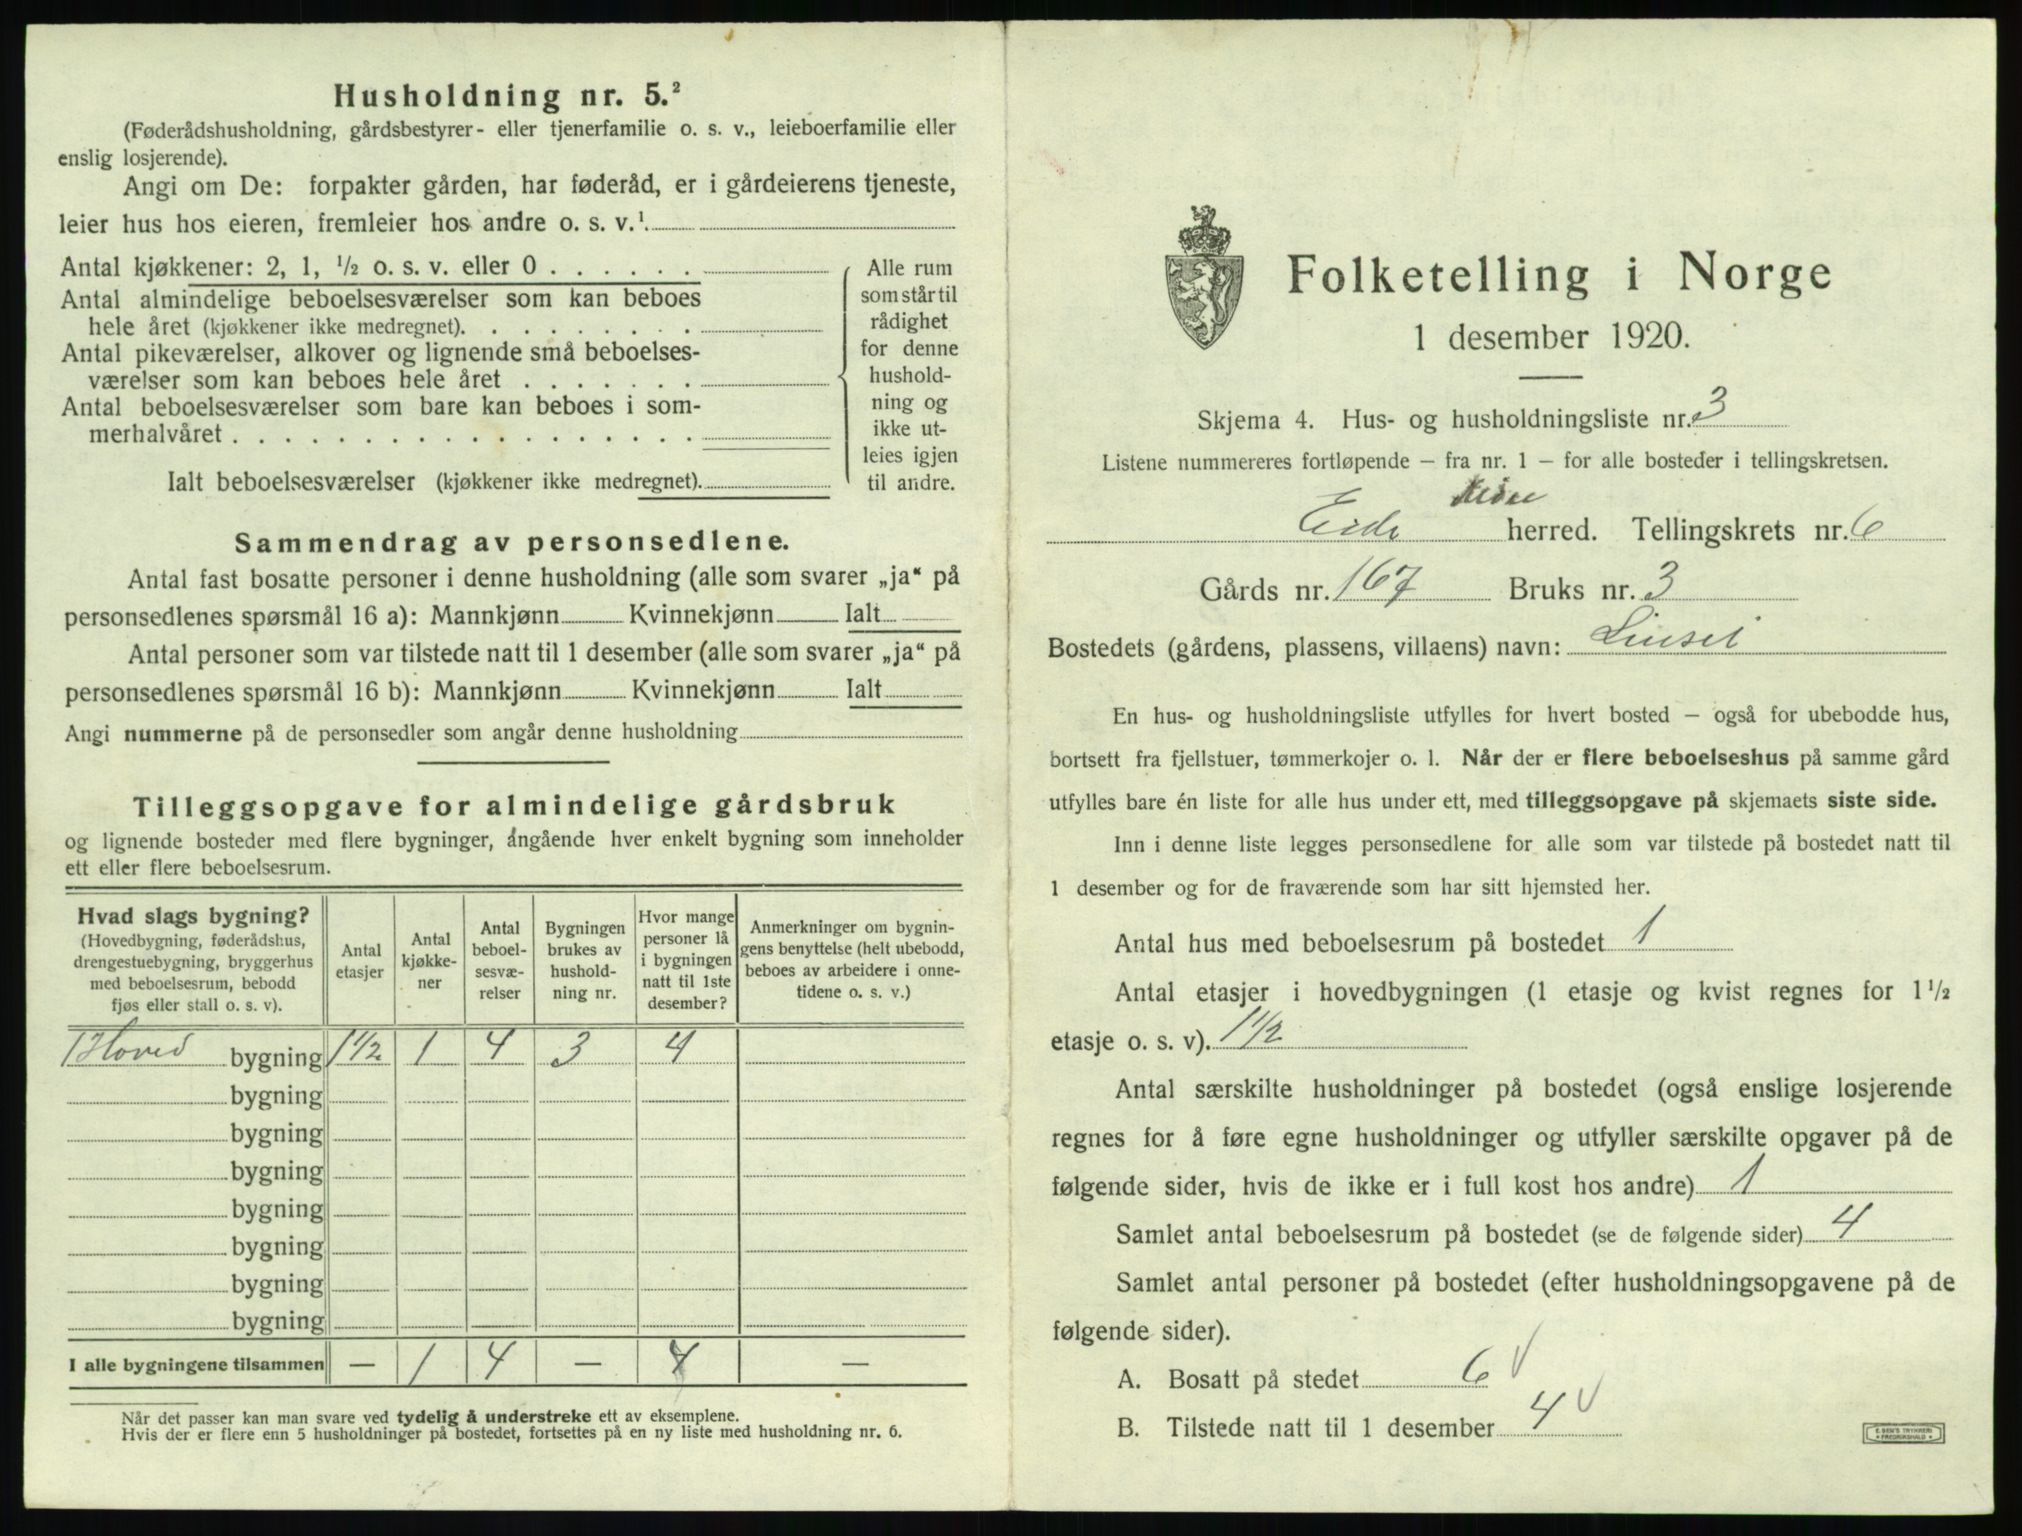 Husholdning nr. 5.²
(Føderådshusholdning, gårdsbestyrer- eller tjenerfamilie o. s. v., leieboerfamilie eller
enslig losjerende).
Angi om De: forpakter gården, har føderåd, er i gårdeierens tjeneste,
leier hus hos eieren, fremleier hos andre o. s. v.¹
Antal kjøkkener: 2, 1, ½ o. s. v. eller 0 . . . . . .
Antal almindelige beboelsesværelser som kan beboes
hele året (kjøkkener ikke medregnet). . . . . . . . .
Antal pikeværelser, alkover og lignende små beboelses-
værelser som kan beboes hele året . . . . . . .
Antal beboelsesværelser som bare kan beboes i som-
merhalvåret . . . . . . . . . . . . . . . . . .
Ialt beboelsesværelser (kjøkkener ikke medregnet).
Alle rum
som står til
rådighet
for denne
hushold-
ning og
ikke ut-
leies igjen
til andre.
Sammendrag av personsedlene.
Antal fast bosatte personer i denne husholdning (alle som svarer „ja“ på
personsedlenes spørsmål 16 a): Mannkjønn Kvinnekjønn Ialt
Antal personer som var tilstede natt til 1 desember (alle som svarer „ja“ på
personsedlenes spørsmål 16 b): Mannkjønn Kvinnekjønn Ialt
Angi nummerne på de personsedler som angår denne husholdning
Tilleggsopgave for almindelige gårdsbruk
og lignende bosteder med flere bygninger, angående hver enkelt bygning som inneholder
ett eller flere beboelsesrum.
Hvad slags bygning?
(Hovedbygning, føderådshus,
drengestuebygning, bryggerhus
med beboelsesrum, bebodd
fjøs eller stall o. s. v).
Antal
etasjer
Antal
kjøkke-
ner
Antal
beboel-
sesvæ-
relser
Bygningen
brukes av
hushold-
ning nr.
Hvor mange
personer lå
i bygningen
natt til 1ste
desember?
Anmerkninger om bygnin-
gens benyttelse (helt ubebodd,
beboes av arbeidere i onne-
tidene o. s. v.)
1 Hoved bygning 1½ 1 4 3 4
bygning
bygning
bygning
bygning
bygning
bygning
bygning
I alle bygningene tilsammen — 1 4 — 4 —
Når det passer kan man svare ved tydelig å understreke ett av eksemplene.
Hvis der er flere enn 5 husholdninger på bostedet, fortsettes på en ny liste med husholdning nr. 6.
Folketelling i Norge
1 desember 1920.
Skjema 4. Hus- og husholdningsliste nr. 3
Listene nummereres fortløpende — fra nr. 1 — for alle bosteder i tellingskretsen.
Eide herred. Tellingskrets nr. 6
Gårds nr. 167 Bruks nr. 3
Bostedets (gårdens, plassens, villaens) navn: Linset
En hus- og husholdningsliste utfylles for hvert bosted — også for ubebodde hus,
bortsett fra fjellstuer, tømmerkojer o. l. Når der er flere beboelseshus på samme gård
utfylles bare én liste for alle hus under ett, med tilleggsopgave på skjemaets siste side.
Inn i denne liste legges personsedlene for alle som var tilstede på bostedet natt til
1 desember og for de fraværende som har sitt hjemsted her.
Antal hus med beboelsesrum på bostedet 1
Antal etasjer i hovedbygningen (1 etasje og kvist regnes for 1½
etasje o. s. v). 1½
Antal særskilte husholdninger på bostedet (også enslige losjerende
regnes for å føre egne husholdninger og utfyller særskilte opgaver på de
følgende sider, hvis de ikke er i full kost hos andre) 1
Samlet antal beboelsesrum på bostedet (se de følgende sider) 4
Samlet antal personer på bostedet (efter husholdningsopgavene på de
følgende sider).
A. Bosatt på stedet 6 √
B. Tilstede natt til 1 desember 4 √
E. SEM'S TRYKKERI
• FREDRIKSHALD •